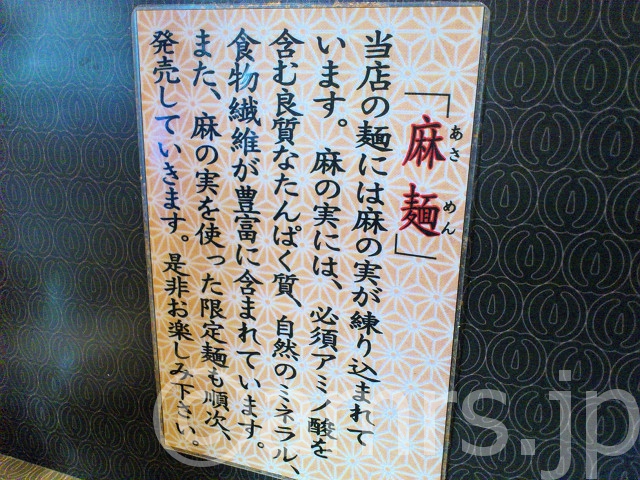 「麻麺」
あさ めん
当店の麺には麻の実が練り込まれて
います。麻の実には、必須アミノ酸を
含む良質なたんぱく質、自然のミネラル、
食物繊維が豊富に含まれています。
また、麻の実を使った限定麺も順次、
発売していきます。是非お楽しみ下さい。